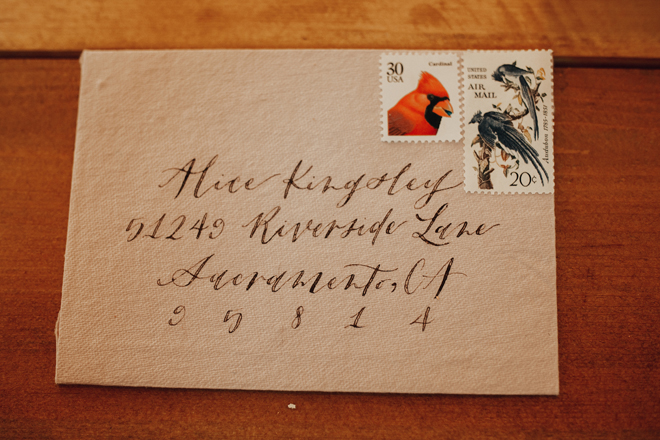 30
USA
Cardinal
UNITED
STATES
AIR
MAIL
Audubon 1785-1851
20¢
Alice Kingsley
51249 Riverside Lane
Sacramento, CA
9 5 8 1 4